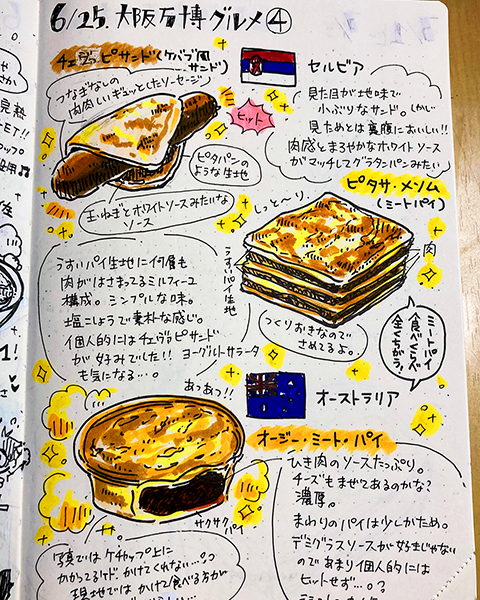 6/25. 大阪万博グルメ④
チェヴァピサンド(ケバブ風サンド)
セルビア
つなぎなしの
肉肉しいギュッとしたソーセージ
ヒット
見た目が地味で
小ぶりなサンド。しかし
見ためとは裏腹においしい!!
肉感とまろやかなホワイトソース
がマッチしてグラタンパンみたい
ピタパンの
ような生地
玉ねぎとホワイトソースみたいな
ソース
ピタサ・メソム
(ミートパイ)
しっと〜り、
肉
うすいパイ生地
うすいパイ生地に何層も
肉がはさまってるミルフィーユ
構成。シンプルな味。
塩こしょうで素朴な感じ。
個人的にはチェヴァピサンド
が好みでした!! ヨーグルトサラータ
も気になる…。
つくりおきなので
さめてるよ。
ミートパイ
食べくらべ
全くちがう!
あつあつ!!
オーストラリア
オージー・ミート・パイ
サクサク
パイ
ひき肉のソースたっぷり。
チーズもまぜてあるのかな?
濃厚。
まわりのパイは少しかため。
デミグラスソースが好きじゃない
のであまり個人的には
ヒットせず…。
写真ではケチャップ上に
かかってるけど、かけてくれない…。
現地ではかけて食べる方が